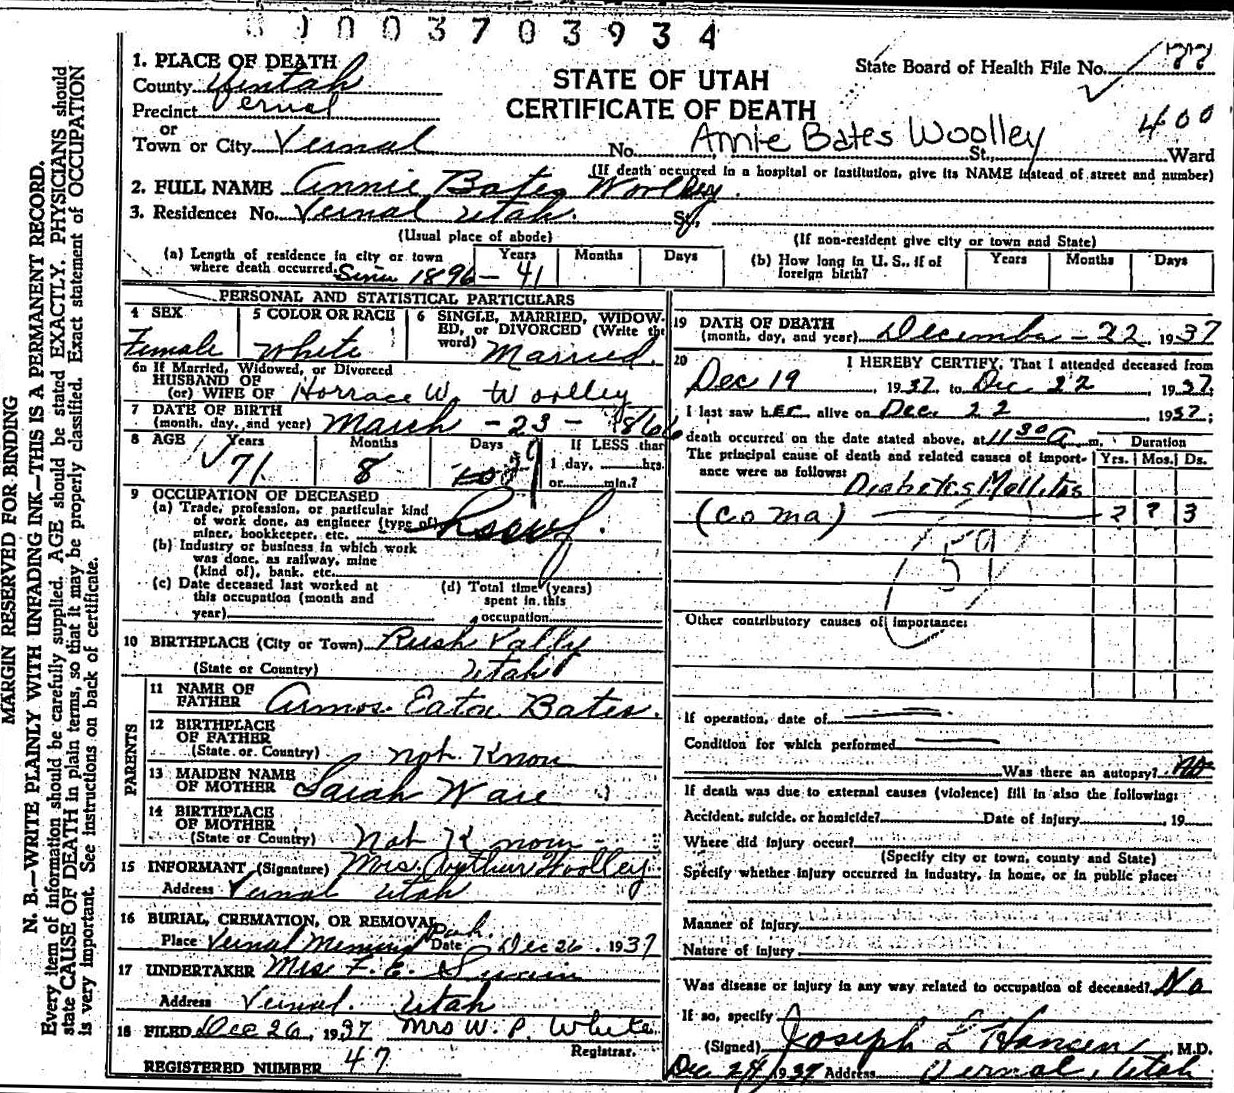 8 1 0 0 3 7 0 3 9 3 4
1. PLACE OF DEATH
County Uintah
Precinct Vernal
or
Town or City Vernal
STATE OF UTAH
CERTIFICATE OF DEATH
State Board of Health File No. 177
400
No. Annie Bates Woolley St., Ward
(If death occurred in a hospital or institution, give its NAME instead of street and number)
2. FULL NAME Annie Bates Woolley
3. Residence: No. Vernal Utah. St.,
(Usual place of abode)
(If non-resident give city or town and State)
(a) Length of residence in city or town where death occurred. Since 1896 – Years 41 Months Days
(b) How long in U. S., if of foreign birth? Years Months Days
PERSONAL AND STATISTICAL PARTICULARS
4 SEX
Female
5 COLOR OR RACE
White
6 SINGLE, MARRIED, WIDOW-
ED, or DIVORCED (Write the
word) Married.
6a If Married, Widowed, or Divorced
HUSBAND OF
(or) WIFE OF Horrace W. Woolley
7 DATE OF BIRTH
(month, day, and year) March - 23 - 1866
8 AGE Years 71 Months 8 Days 29
If LESS than
1 day, hrs.
or min.?
9 OCCUPATION OF DECEASED
(a) Trade, profession, or particular kind
of work done, as engineer (type of)
miner, bookkeeper, etc. Hsewf.
(b) Industry or business in which work
was done, as railway, mine
(kind of), bank, etc.
(c) Date deceased last worked at
this occupation (month and
year)
(d) Total time (years)
spent in this
occupation
10 BIRTHPLACE (City or Town) Rush Vally
(State or Country) Utah
PARENTS
11 NAME OF
FATHER Armos. Eaton Bates.
12 BIRTHPLACE
OF FATHER
(State or Country) not Know
13 MAIDEN NAME
OF MOTHER Sarah Ware
14 BIRTHPLACE
OF MOTHER
(State or Country) Not Know
15 INFORMANT (Signature) Mrs. Arthur Woolley
Address Vernal Utah
16 BURIAL, CREMATION, OR REMOVAL
Place Vernal Memorial Park. Date Dec 26, 1937
17 UNDERTAKER Mrs F. E. Swain
Address Vernal. Utah
18 FILED Dec 26, 1937 Mrs W. P. White
Registrar.
REGISTERED NUMBER 47
19 DATE OF DEATH
(month, day, and year) December - 22, 1937
20 I HEREBY CERTIFY, That I attended deceased from
Dec 19, 1937, to Dec 22, 1937;
I last saw her alive on Dec. 22 1937;
death occurred on the date stated above, at 11 30 a m.
Duration
The principal cause of death and related causes of import-
ance were as follows:
Yrs. Mos. Ds.
Diabetes Mellitas
(coma) ? ? 3
59
Other contributory causes of importance:
If operation, date of
Condition for which performed
Was there an autopsy? no
If death was due to external causes (violence) fill in also the following:
Accident, suicide, or homicide? Date of injury, 19
Where did injury occur?
(Specify city or town, county and State)
Specify whether injury occurred in industry, in home, or in public place:
Manner of Injury
Nature of Injury
Was disease or injury in any way related to occupation of deceased? No
If so, specify
(Signed) Joseph L Hansen, M.D.
Dec 24 1937 Address Vernal, Utah
MARGIN RESERVED FOR BINDING
N. B.—WRITE PLAINLY WITH UNFADING INK—THIS IS A PERMANENT RECORD.
Every item of information should be carefully supplied. AGE should be stated EXACTLY. PHYSICIANS should
state CAUSE OF DEATH in plain terms, so that it may be properly classified. Exact statement of OCCUPATION
is very important. See instructions on back of certificate.